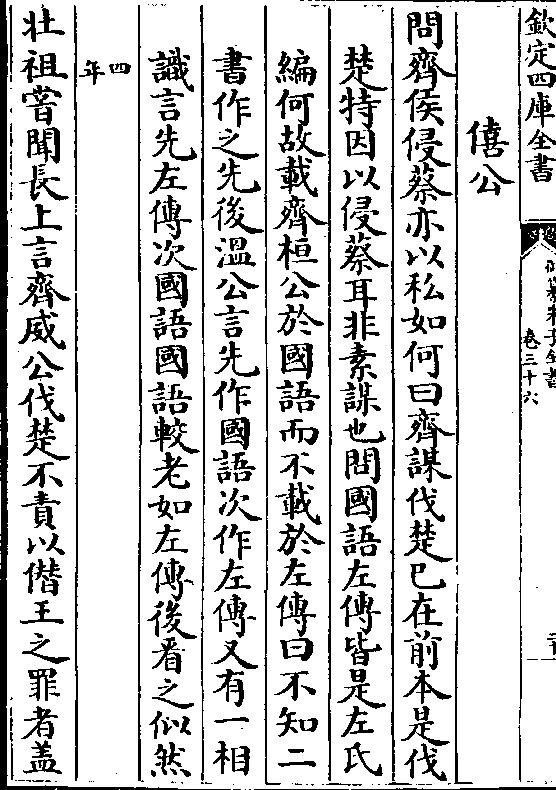 欽定四庫全書
御纂朱子全書
卷三十六
僖公
問齊侯侵蔡亦以私如何曰齊謀伐楚已在前本是伐
楚特因以侵蔡耳非素謀也問國語左傳皆是左氏
編何故載齊桓公於國語而不載於左傳曰不知二
書作之先後溫公言先作國語次作左傳又有一相
識言先左傳次國語國語較老如左傳後看之似然
四年
壯祖嘗聞長上言齊威公伐楚不責以僭王之罪者盖